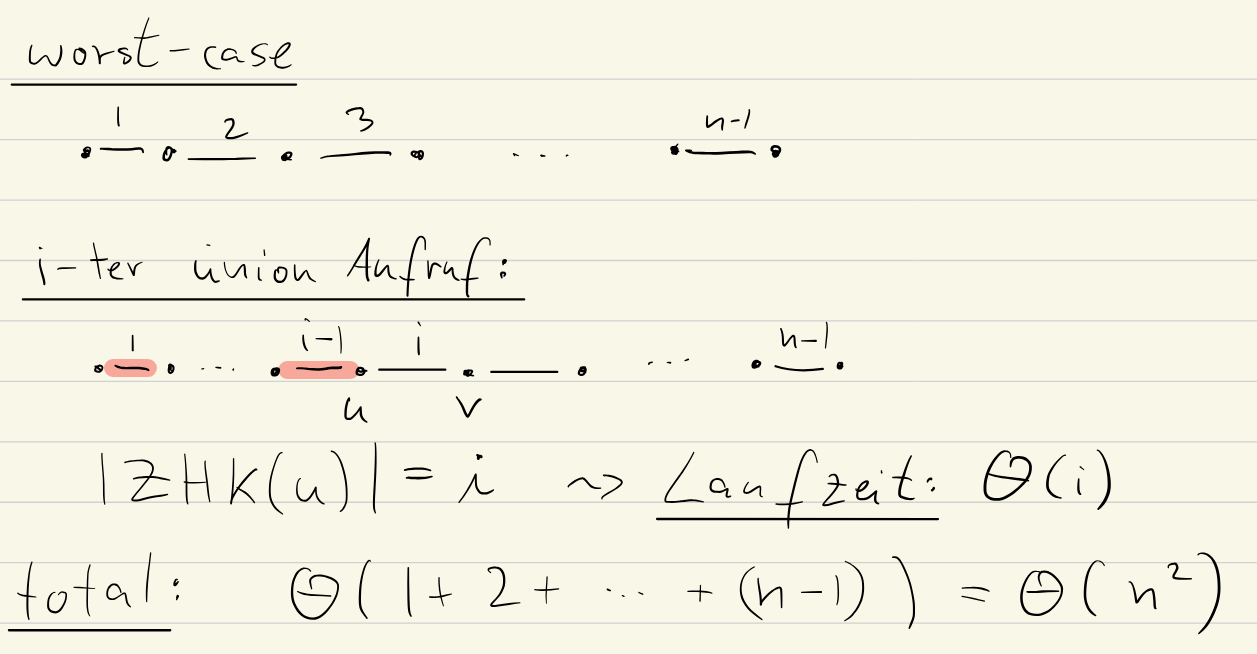 worst-case
1 2 3 ... n-1
i-ter union Aufruf:
1 ... i-1 i ... n-1
u v
|ZHK(u)| = i ⇝ Laufzeit: Θ(i)
total: Θ(1 + 2 + ... + (n-1)) = Θ(n²)